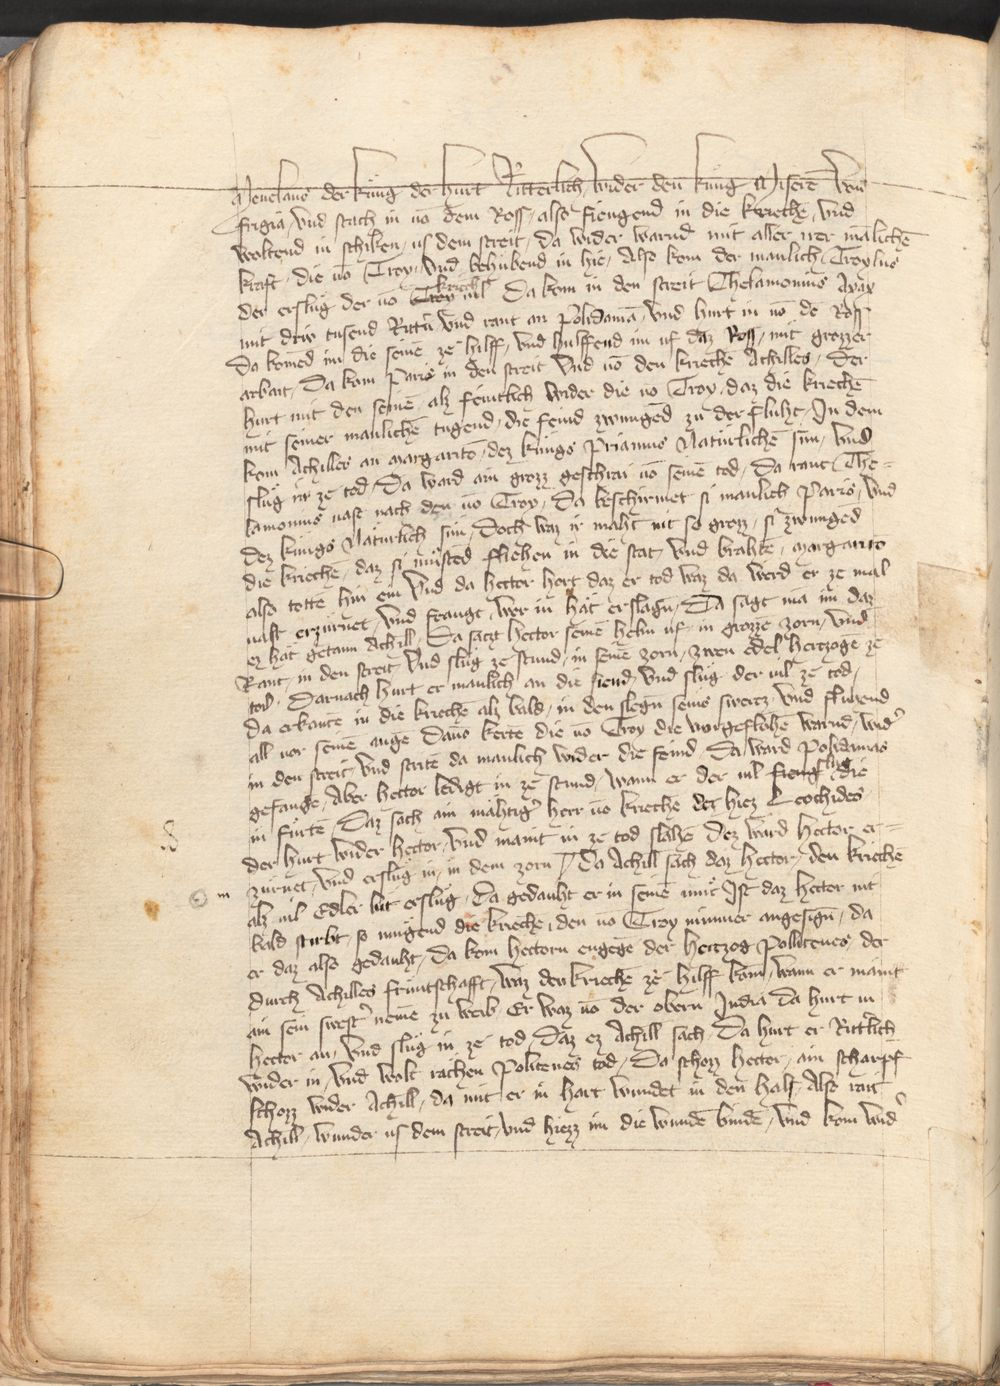 Menelaus der küng der hurt Ritterlich wider den küng Miserē von
frigia / vnd stach in vō dem Ross / also fiengend in die kriechē / vnd
woltend in schiken / us dem streit / da wider warnd mit aller irer mālichē
kraft / die vō Troy / vnd behubend in hie / Also kom der manlich Troylus
der erslůg der vō Troy kriech vil Da kom in den streit Thelamonius Ayax
mit driw tusend Rittˀn vnd rant an Polidamā / vnd hurt in vō dē Ross
Da komēd im die seinē zē hilff / vnd hulffend im uf daz Ross / mit grozzer
arbait / Da kom Paris in den streit Vnd vō den kriechē Achilles / Der
hurt mit den seinē / alz feintlich wider die vō Troy / daz die kriechē
mit seiner manlichē tugend / die feind zwungēd zu der fluht / In dem
kom Achilles an margaritō / dez küngs Priamus Natürlichē sün / vnd
slůg in ze tod / Da ward ain grozz geschrai vō seinē tod / Da rant The=
lamonius vast nach den vō Troy / Da beschirmet si manlich Paris / vnd
dez küngs Natürlich sün / Doch waz ir maht nit so grozz / si zwunged
die kriechē / daz si můsted fliehen in die stat / vnd brahtē / margarito
also totte hin ein Vnd da hector hort daz er tod waz da werd er ze mal
vast erzürnet / vnd fraugt / wer in hät erslagn / Da sagt mā im daz
ez hät getann Achill / Da satzt hector seinē helm uf / in grozzē zorn / vnd
Rant / in den streit / Vnd slůg ze stund / in seinē zorn / zwen edel hertzogē ze
tod / Darnach hurt er manlich an die fiend / vnd slůg der vil ze tod /
da erkante in die kriechē alz bald / in den slegn seins swertz / vnd fluhend
all vor seinē auge Davō kerte die vō Troy die vorgeflohē warnd / widˀ
in den streit / vnd stritē da manlich wider die feind / Da ward Polidamas
gefangē / Aber hector ledigt in ze stund / wann er der vil fieng slůg die
in fůrtē / Daz sach ain mähtigˀ herr vō kriechē der hiez Leochides
der hurt wider hector / vnd maint in ze tod slahē Dez ward hector er=
zürnet / vnd erslůg in / in dem zorn // Da Achill sach daz hector / den kriechē
alz vil Edler lüt erslůg / da gedauht er in seinē můt Ist daz hector nit
bald stirbt / so mügend die kriechē / den vō Troy nimmer angesign / da
er daz also gedauht / Da kom hectorn engegē der hertzog Pollitenes / der
durch Achilles früntschafft / waz den kriechē zē hilff kom / wann er maint
ain sein swestˀ nemē zu weib / Er waz vō der obern India da hurt in
hector an / vnd slůg in ze tod / Daz ez Achill sach / Da hurt er Rittˀlich
wider in / vnd wolt rächen Politenes tod / Da schozz hector / ain scharpf
schozz wider Achill / da mit er in hart wundet in den hals / Also rait
Achill / wunder us dem streit / vnd hiezz im die wundē bindē / vnd kom widˀ